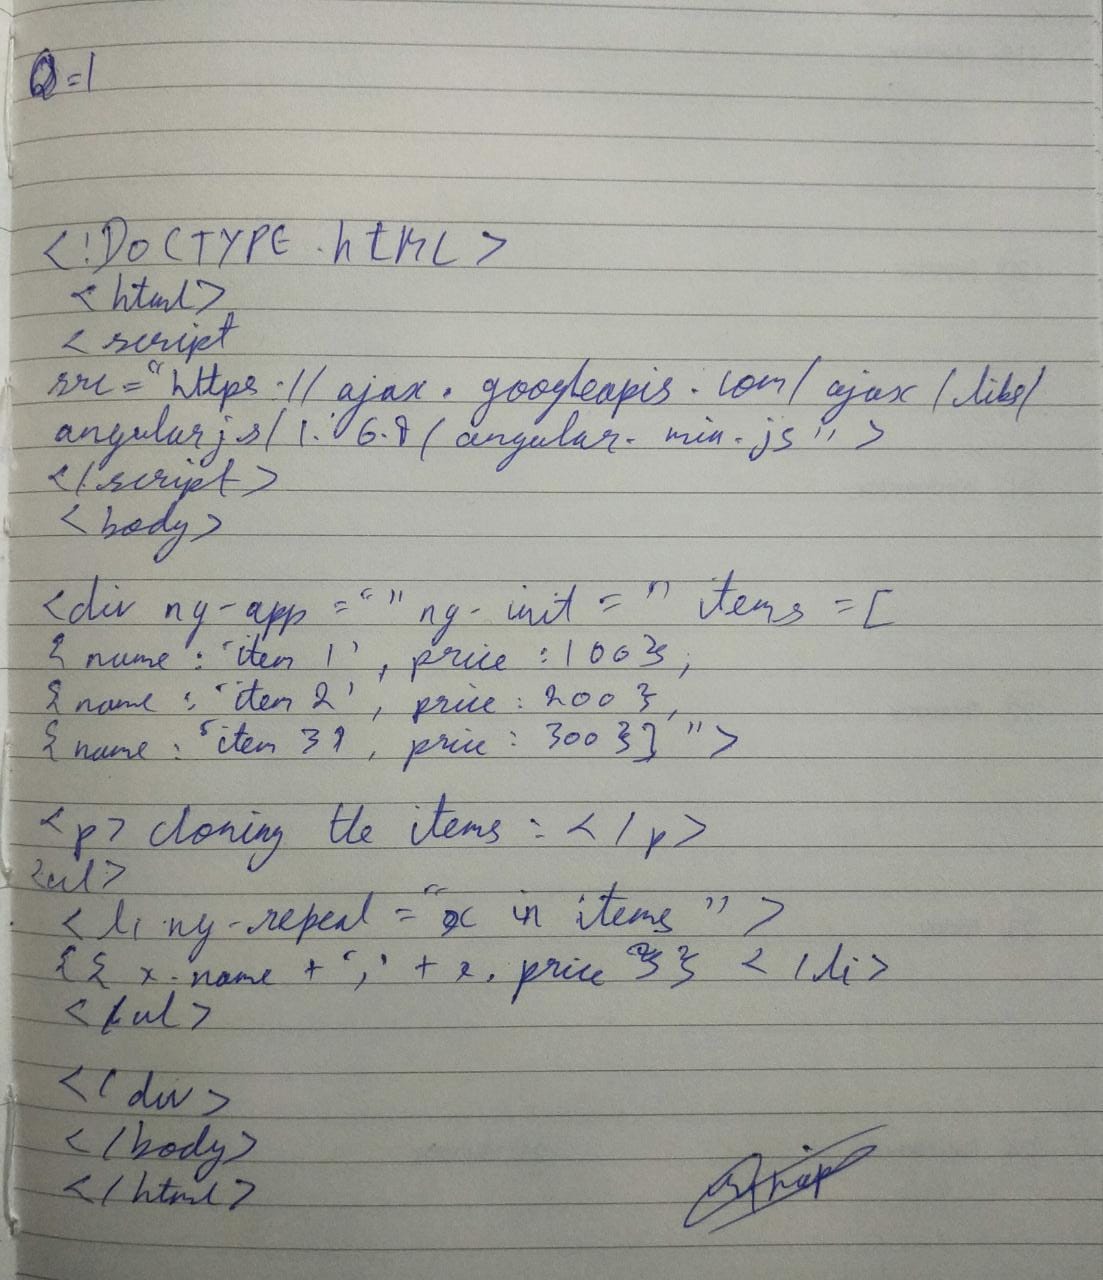 Q=1
<!DOCTYPE html>
<html>
<script
src="https://ajax.googleapis.com/ajax/libs/
angularjs/1.6.9/angular.min.js">
</script>
<body>
<div ng-app="" ng-init=" items =[
{name: 'item 1', price :100},
{name: 'item 2', price: 200},
{name: 'item 3', price: 300}]">
<p> cloning the items: </p>
<ul>
<li ng-repeat="x in items">
{{ x.name + ',' + x.price }} </li>
</ul>
</div>
</body>
</html>